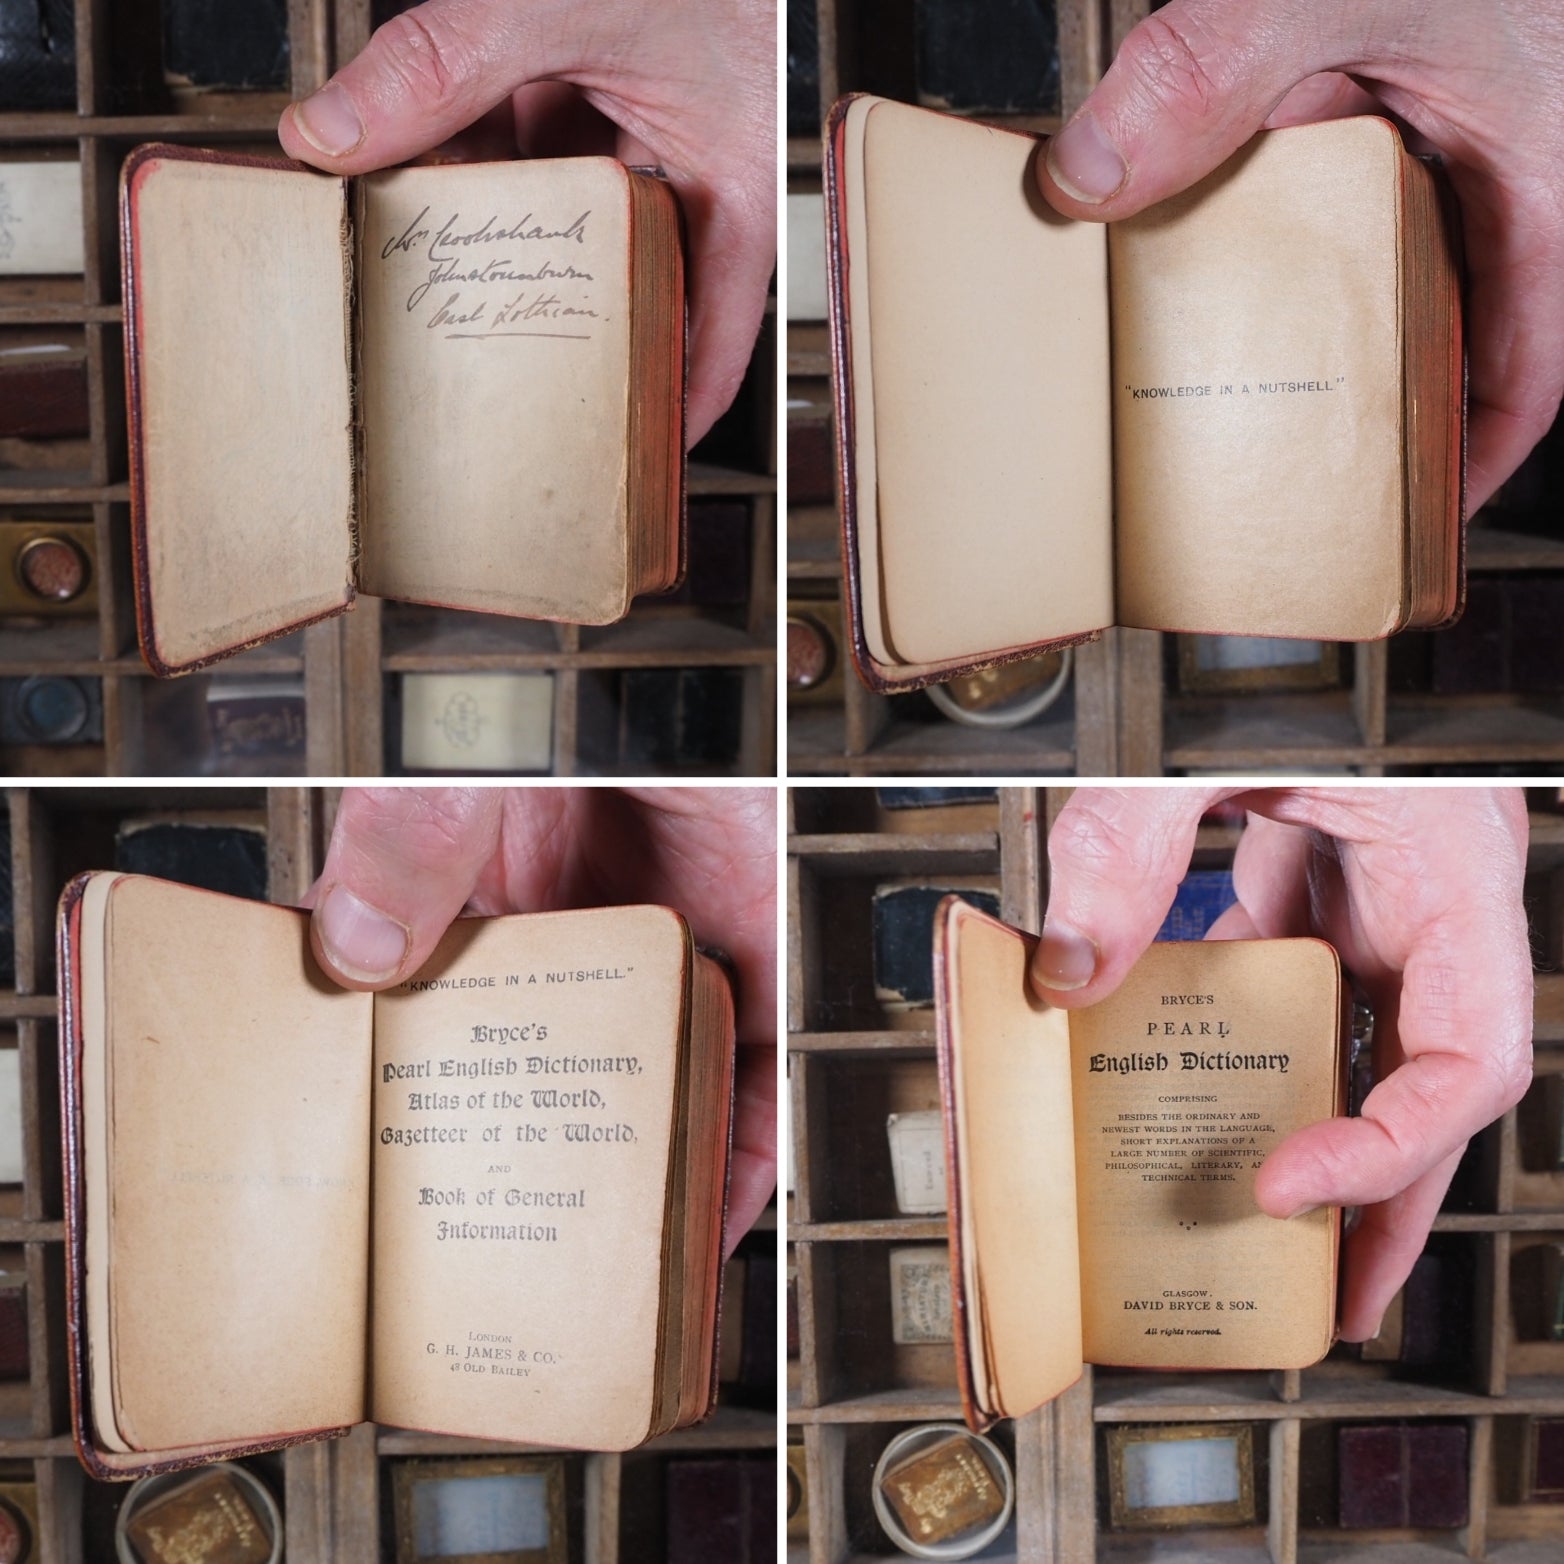 Wm Cookshank
Johnstounburn
East Lothian.
"KNOWLEDGE IN A NUTSHELL"
"KNOWLEDGE IN A NUTSHELL."
Bryce's
Pearl English Dictionary,
Atlas of the World,
Gazetteer of the World,
AND
Book of General
Information
LONDON
G. H. JAMES & CO.
48 OLD BAILEY
BRYCE'S
PEARL
English Dictionary
COMPRISING
BESIDES THE ORDINARY AND
NEWEST WORDS IN THE LANGUAGE,
SHORT EXPLANATIONS OF A
LARGE NUMBER OF SCIENTIFIC,
PHILOSOPHICAL, LITERARY, AN
TECHNICAL TERMS.
GLASGOW.
DAVID BRYCE & SON.
All rights reserved.